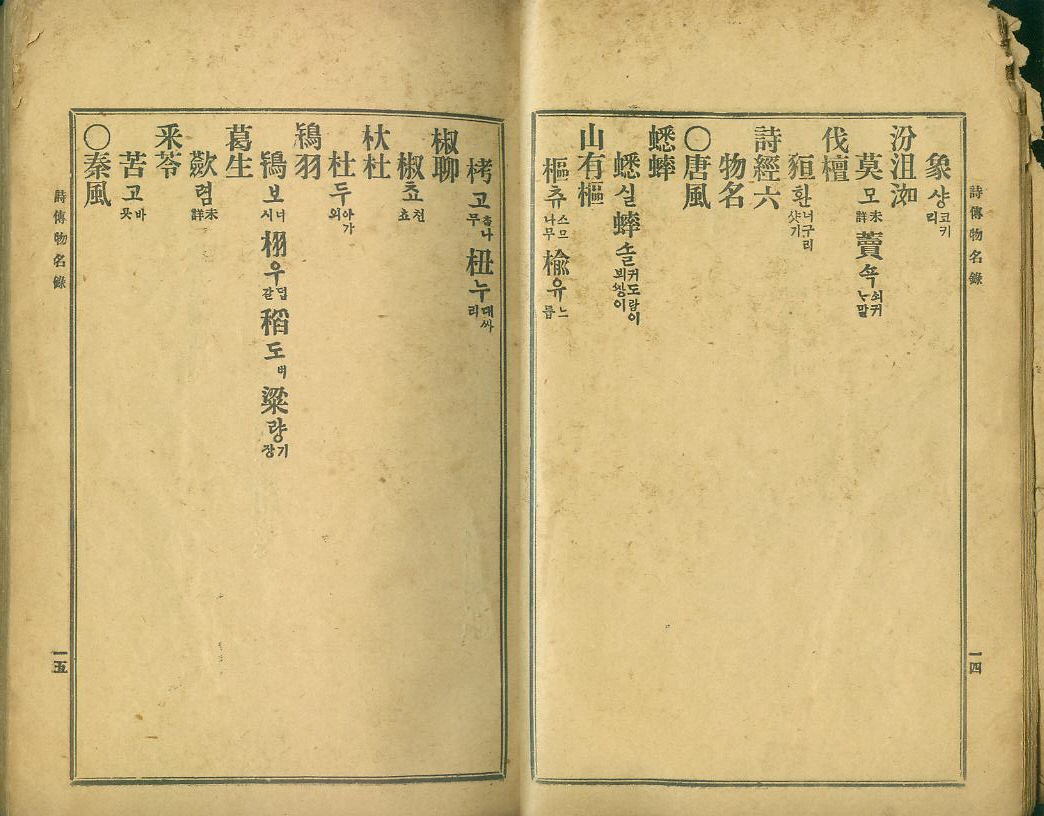 詩傳物名錄
象 샹 코키리
汾沮洳
莫 모 未詳 藚 쇽
伐檀
貆 환 너구리샷기
詩經六
物名
〇唐風
蟋蟀
蟋 실 蟀 솔 귀도람이 뵈쌍이
山有樞
樞 츄 스므나무 楡 유 느릅
一四
栲 고 杻 누 대싸리
椒聊
椒 쵸 쳔쵸
杕杜
杜 두 아가외
鴇羽
鴇 보 너시 栩 우 덥갈 稻 도 벼 粱 량 기장
葛生
蘞 렴 未詳
采苓
苦 고
〇秦風
詩傳物名錄
一五